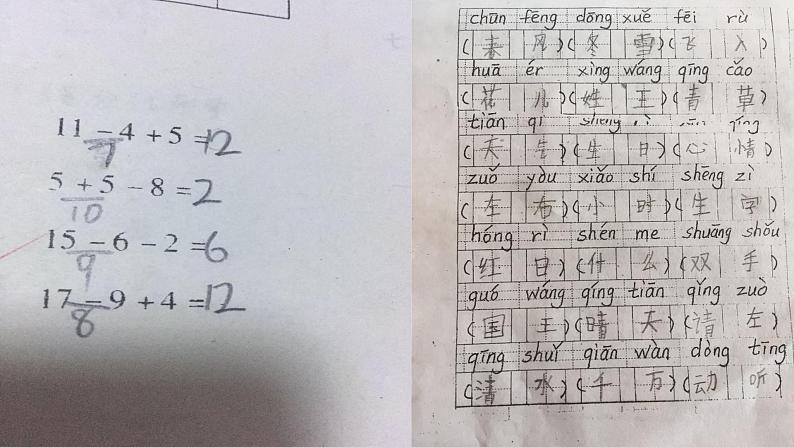 11 − 4 + 5 = 12
7
5 + 5 − 8 = 2
10
15 − 6 − 2 = 6
9
17 − 9 + 4 = 12
8
chūn fēng dōng xuě fēi rù
(春 风)(冬 雪)(飞 入)
huā ér xìng wáng qīng cǎo
(花 儿)(姓 王)(青 草)
tiān qì
(天 )(生 日)(心 情)
zuǒ yòu xiǎo shí shēng zì
(左 右)(小 时)(生 字)
hóng rì shén me shuāng shǒu
(红 日)(什 么)(双 手)
guó wáng qíng tiān qǐng zuò
(国 王)(晴 天)(请 左)
qīng shuǐ qiān wàn dòng tīng
(清 水)(千 万)(动 听)